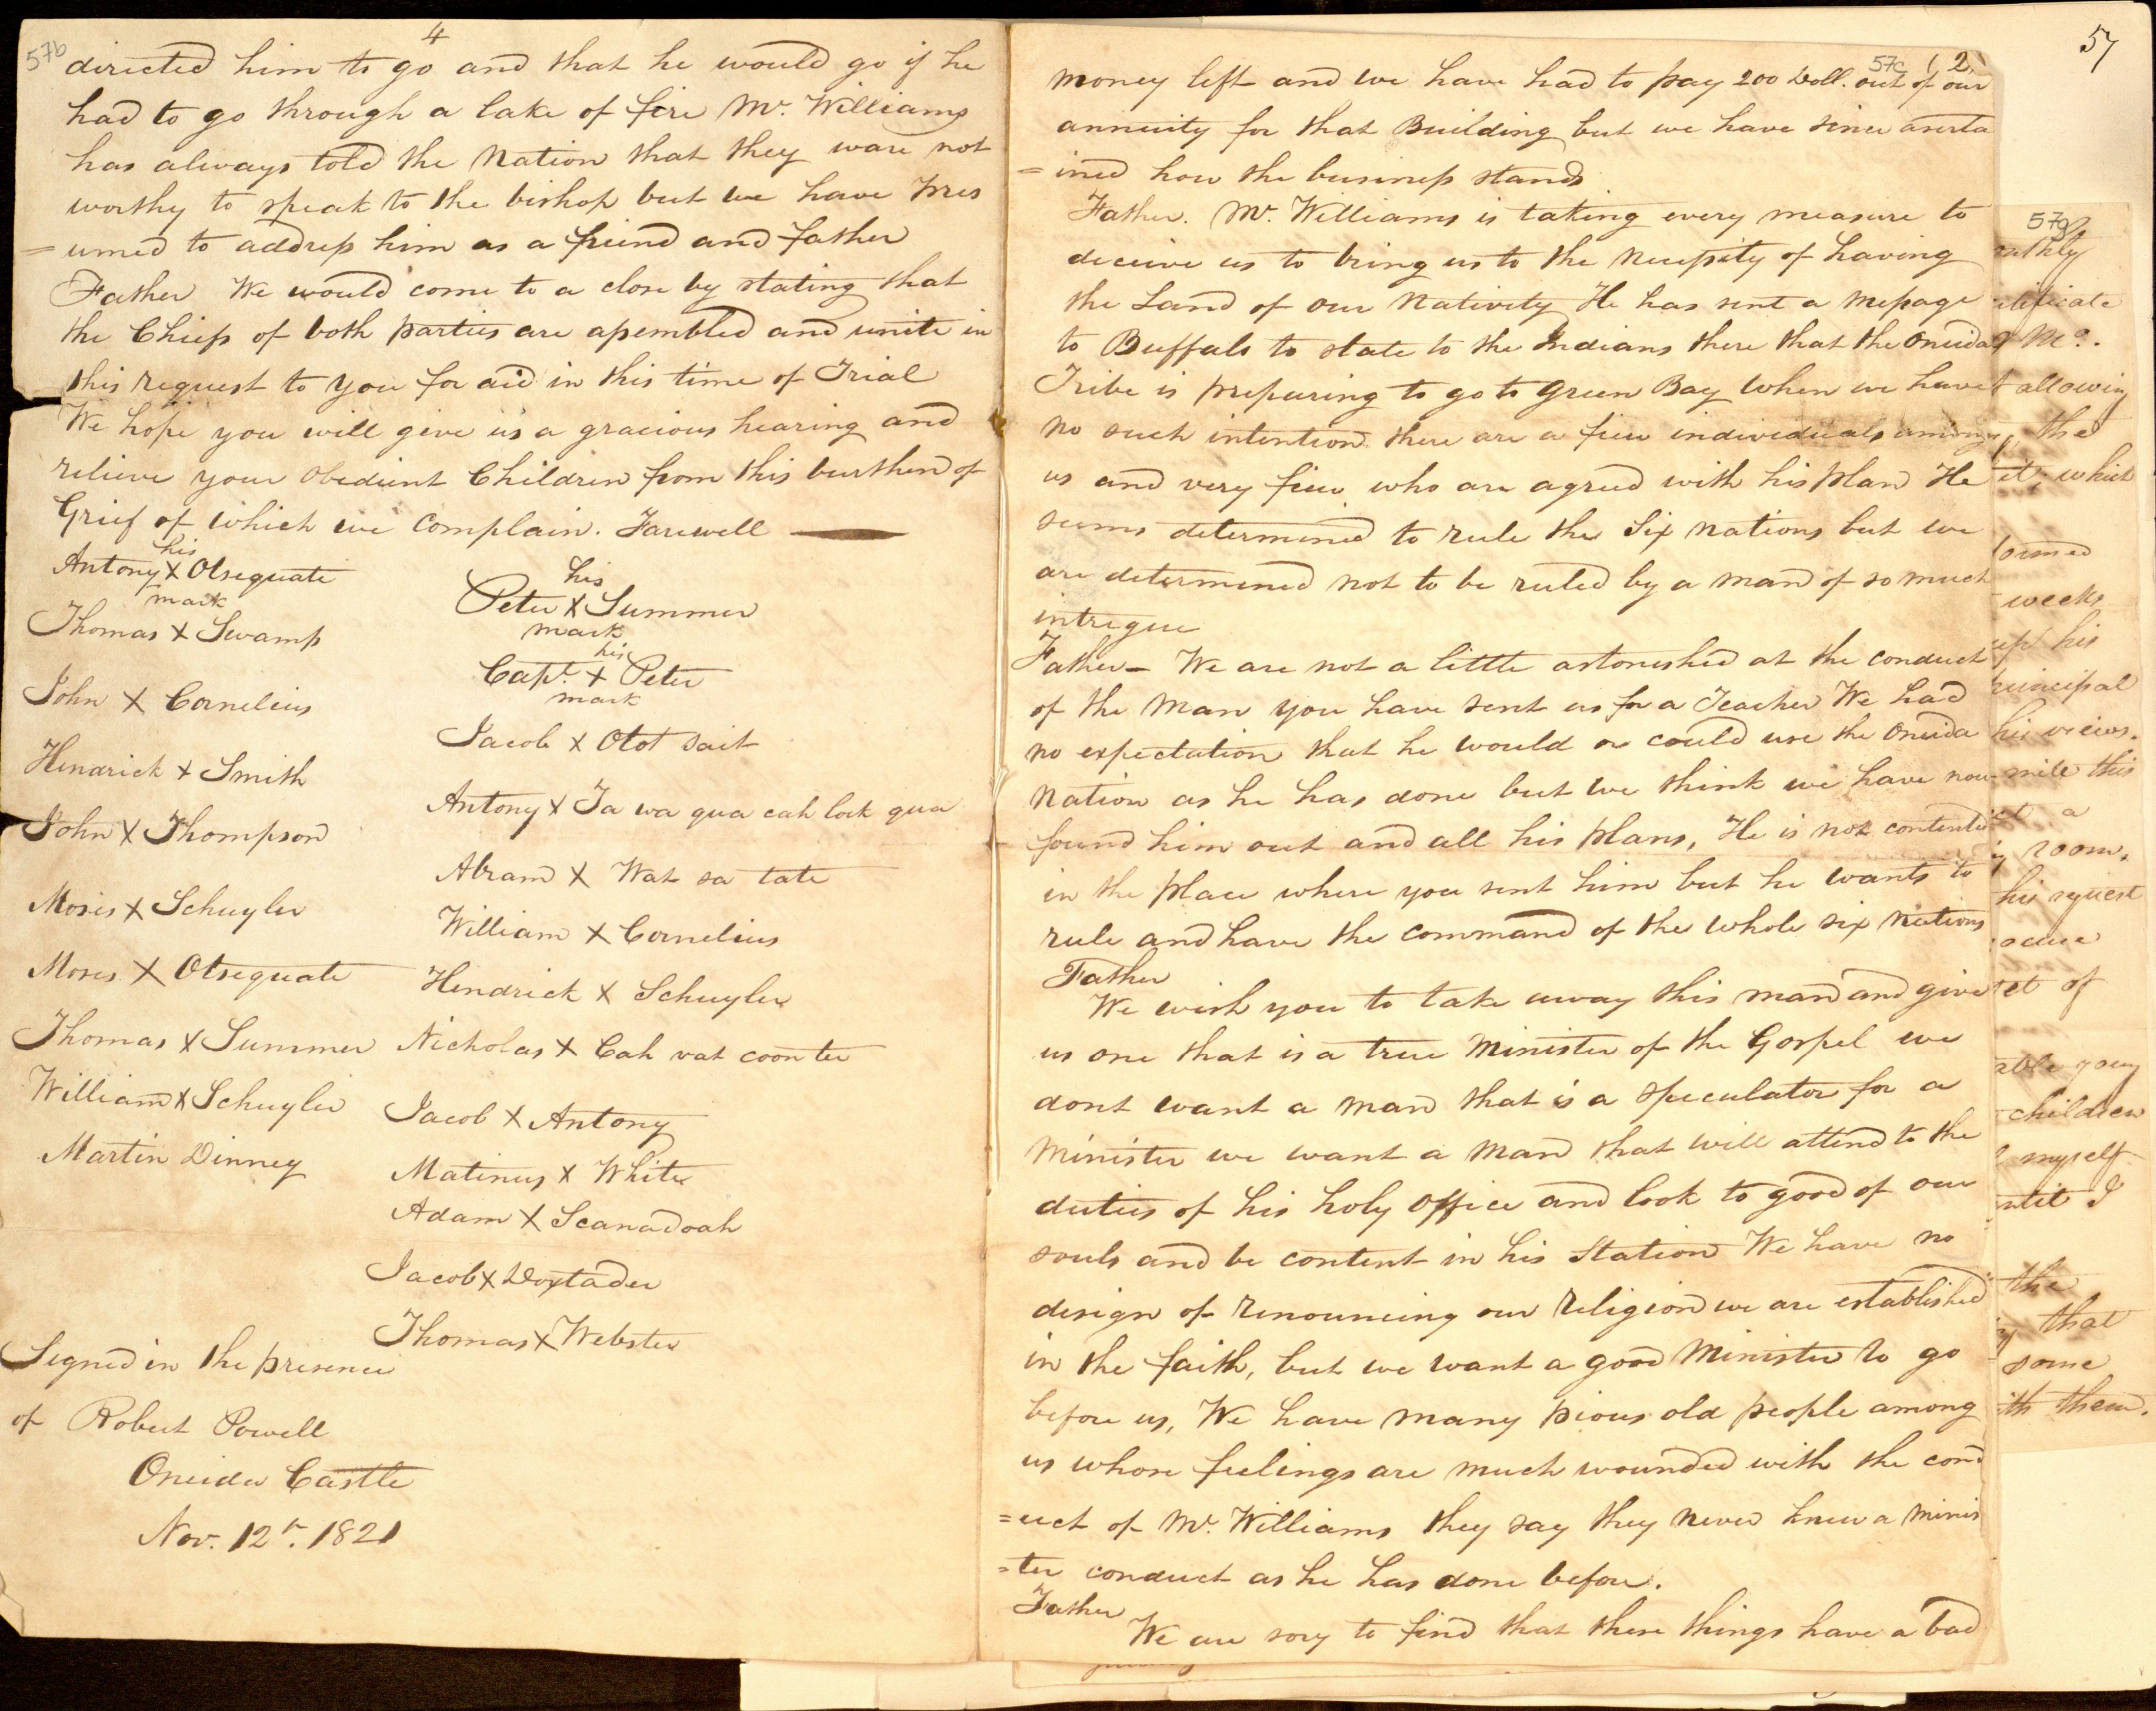 4
57b
directed him to go and that he would go if he
had to go through a lake of fire Mr. Williams
has always told the Nation that they ware not
worthy to speak to the bishop but we have Pres
=umed to address him as a friend and father
Father We would come to a close by stating that
the Chiefs of both parties are assembled and unite in
this request to you for aid in this time of Trial
We hope you will give us a gracious hearing and
relieve your obedient Children from this burthen of
Grief of which we complain. Farewell
his
Antony X Otsequate
mark
Thomas X Swamp
John X Cornelius
Hendrick X Smith
John X Thompson
Moses X Schuyler
Moses X Otsequate
Thomas X Summer
William X Schuyler
Martin Dinney
his
Peter X Summer
mark
his
Capt. + Peter
mark
Jacob X Otot sait
Antony X Ta wa qua cah lock qua
Abram X Wat sa tate
William X Cornelius
Hendrick X Schuyler
Nicholas X Cah vat coon ter
Jacob X Antony
Matinus X White
Adam X Scanadoah
Jacob X Doxtader
Thomas X Webster
Signed in the presence
of Robert Powell
Oneida Castle
Nov. 12th. 1821
57c (2)
money left and we have had to pay 200 Doll. out of our
annuity for that Building but we have since aserta
=ined how the business stands
Father. Mr. Williams is taking every measure to
deceive us to bring us to the Necessity of having
the Land of our Nativity He has sent a message
to Buffalo to state to the Indians there that the Oneida
Tribe is preparing to go to Green Bay when we have
no such intention there are a few individuals among
us and very few who are agreed with his plan He
seems determined to rule the Six nations but we
are determined not to be ruled by a man of so much
intregue
Father - We are not a little astonished at the conduct
of the Man you have sent us for a Teacher We had
no expectation that he would or could use the Oneida
Nation as he has done but we think we have now
found him out and all his plans, He is not contented
in the place where you sent him but he wants to
rule and have the command of the whole six Nations
Father
We wish you to take away this man and give
us one that is a true Minister of the Gospel we
dont want a man that is a speculator for a
Minister we want a Man that will attend to the
duties of his holy office and look to good of our
souls and be content in his Station We have no
design of renouncing our religion we are established
in the faith, but we want a good Minister to go
before us, We have many pious old people among
us whose feelings are much wounded with the cond
=uct of Mr. Williams they say they never knew a minis
=ter conduct as he has done before.
Father
We are sory to find that these things have a bad
57
57g
allowing
the
it which
weeks
his
his views.
this
a
room,
his request
of
going
children
myself
I
the
that
some
them.